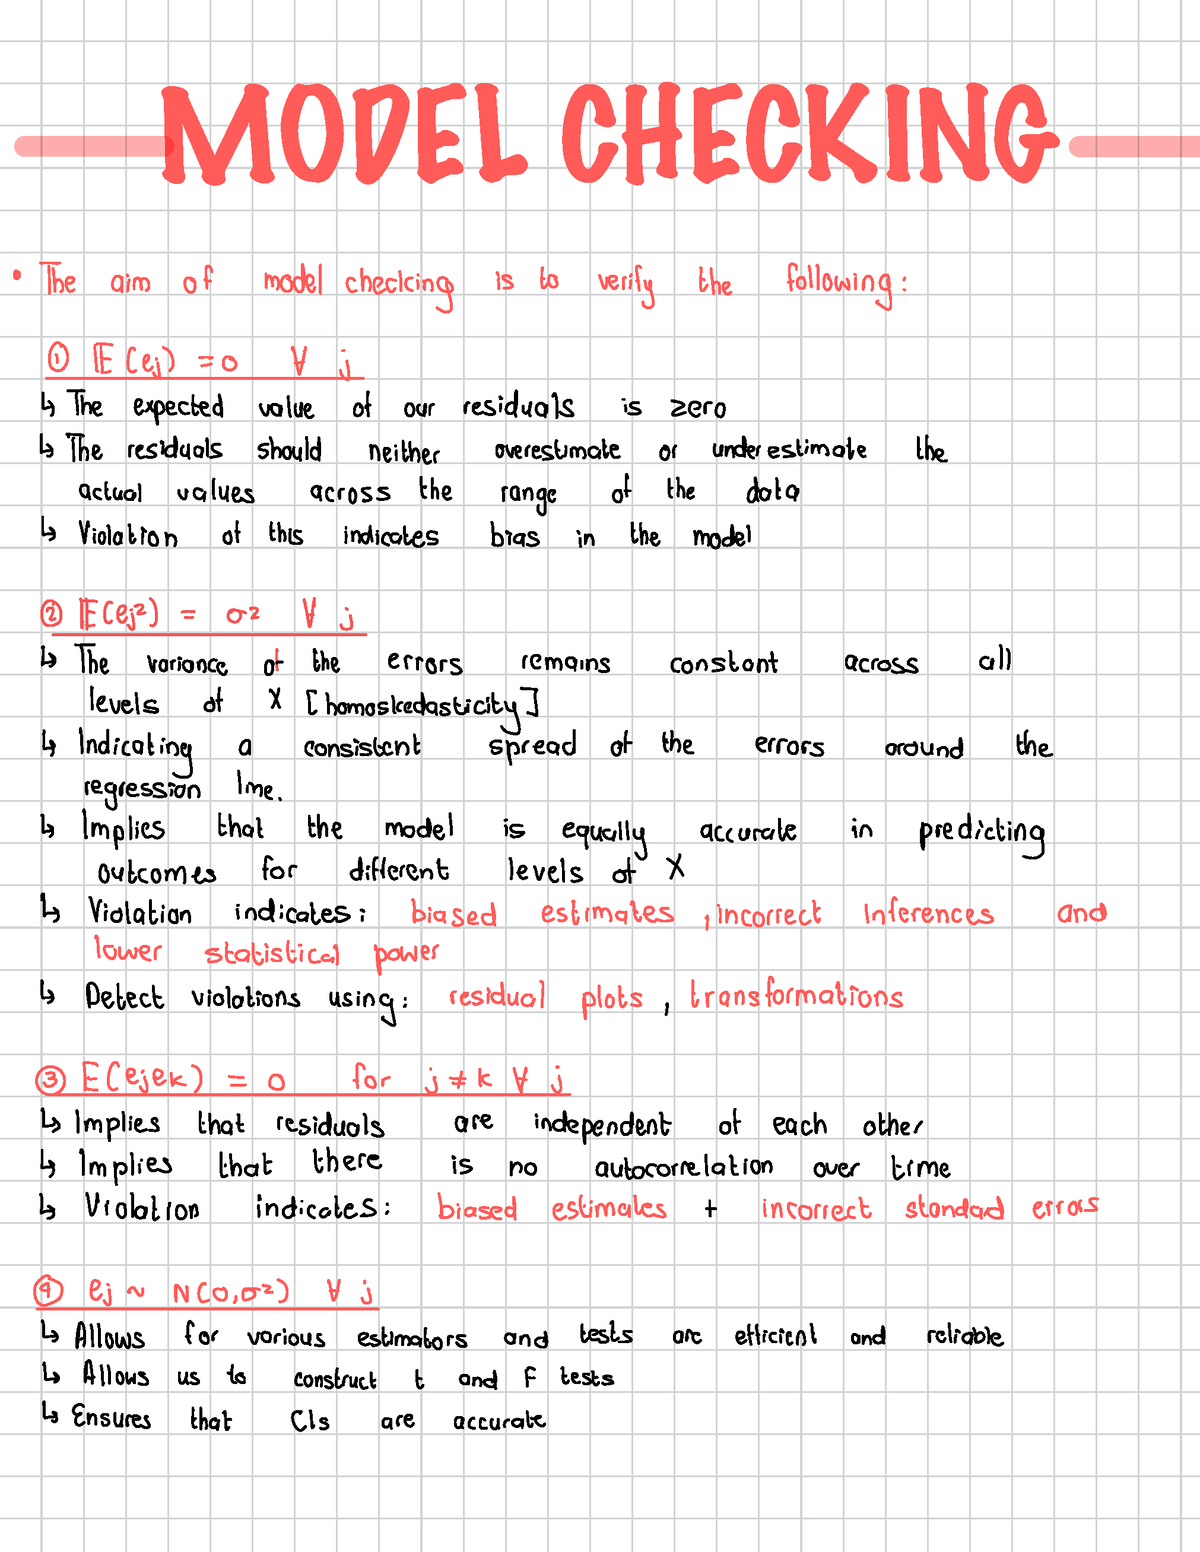 MODEL CHECKING
• The aim of model checking is to verify the following:
① 𝔼(ej) = 0 ∀ j
↳ The expected value of our residuals is zero
↳ The residuals should neither overestimate or underestimate the
actual values across the range of the data
↳ Violation of this indicates bias in the model
② 𝔼(ej²) = σ² ∀ j
↳ The variance of the errors remains constant across all
levels of X [homoskedasticity]
↳ Indicating a consistent spread of the errors around the
regression line.
↳ Implies that the model is equally accurate in predicting
outcomes for different levels of X
↳ Violation indicates: biased estimates, incorrect Inferences and
lower statistical power
↳ Detect violations using: residual plots, transformations
③ E(ejek) = 0 for j ≠ k ∀ j
↳ Implies that residuals are independent of each other
↳ Implies that there is no autocorrelation over time
↳ Violation indicates: biased estimates + incorrect standad errors
④ ej ~ N(0,σ²) ∀ j
↳ Allows for various estimators and tests are efficient and reliable
↳ Allows us to construct t and F tests
↳ Ensures that CIs are accurate